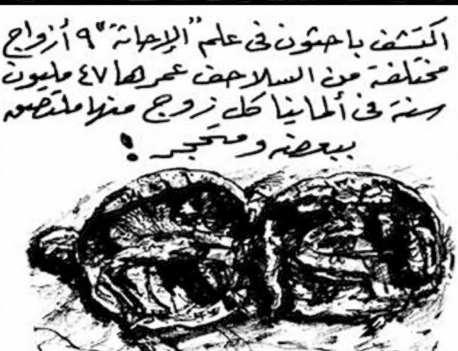 اكتشف باحثون فى علم "الإحاثة" ٩ أزواج
مختلفة من السلاحف عمرها ٤٧ مليون
سنة فى ألمانيا كل زوج منها ملتصق
ببعضه ومتحجر !